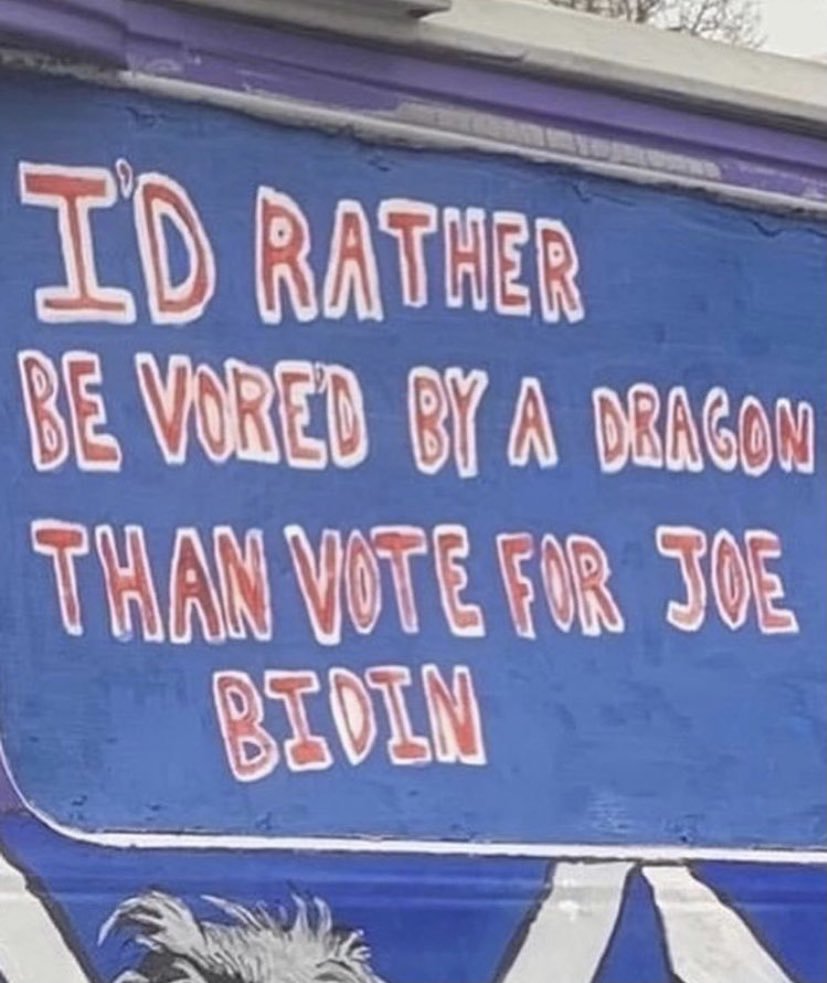 I'D RATHER
BE VORE'D BY A DRAGON
THAN VOTE FOR JOE
BIDIN